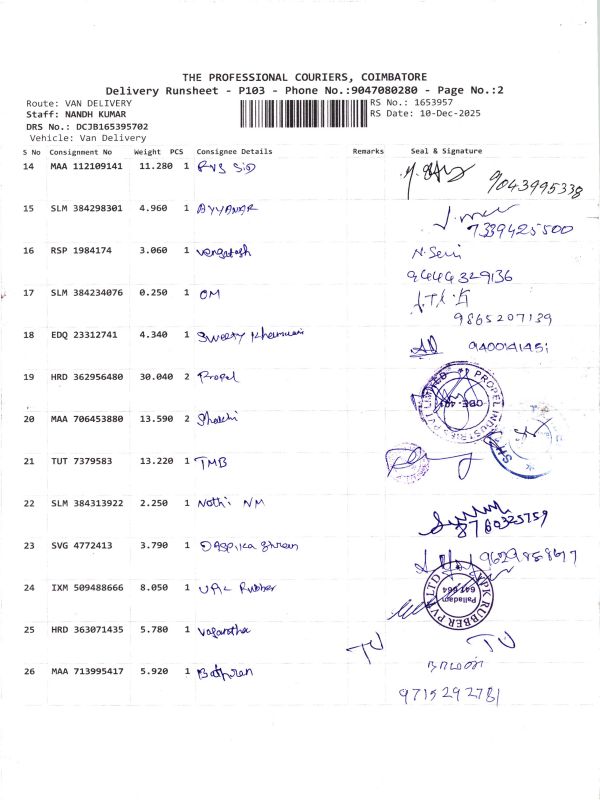 THE PROFESSIONAL COURIERS, COIMBATORE
Delivery Runsheet - P103 - Phone No.:9047080280 - Page No.:2
Route: VAN DELIVERY RS No.: 1653957
Staff: NANDH KUMAR RS Date: 10-Dec-2025
DRS No.: DCJB165395702
Vehicle: Van Delivery
S No Consignment No Weight PCS Consignee Details Remarks Seal & Signature
14 MAA 112109141 11.280 1 RVS
9043995338
15 SLM 384298301 4.960 1 AYYANAR
7339425500
16 RSP 1984174 3.060 1 Vengatesh
9444329136
17 SLM 384234076 0.250 1 OM
9865207139
18 EDQ 23312741 4.340 1 Sweety
9400141451
19 HRD 362956480 30.040 2 Propel
PROPEL INDUSTRIES PVT LIMITED
20 MAA 706453880 13.590 2 Shakthi
21 TUT 7379583 13.220 1 TMB
22 SLM 384313922 2.250 1 Nathi NM
8760325759
23 SVG 4772413 3.790 1
24 IXM 509488666 8.050 1 Rubber
RUBBER PVT LTD
Palladam
641 664
25 HRD 363071435 5.780 1 Vasantha
TV TV
26 MAA 713995417 5.920 1
9715292781